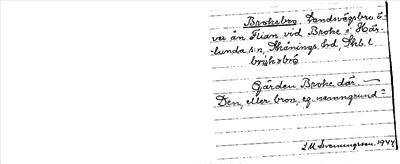 Brokebro. Landsvägsbro ö-
ver ån Tian vid Broke i Här-
lunda sn, Skånings hd, Skb. l.
Gården Broke där.
Den, eller bron, eg. namngrund?
S.M. Svenungsson. 1944